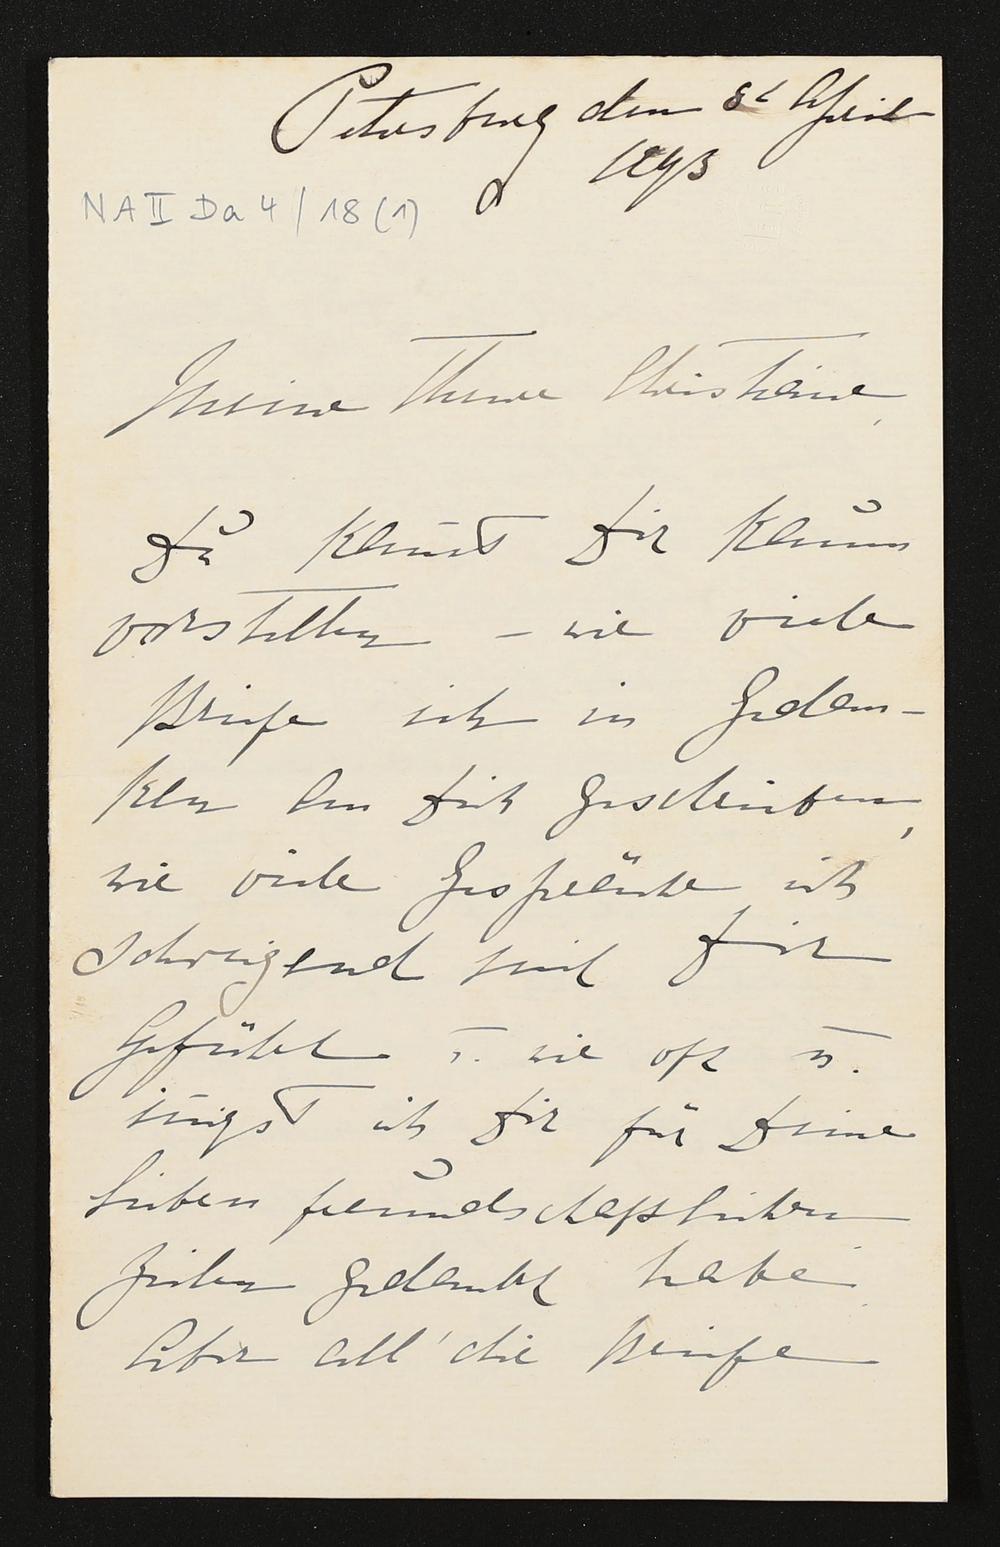 Petersburg den 8t April
1893
NA II Da 4 / 18 (1)
Meine Theure Christiane,
Du kannst Dir kaum
vorstellen – wie viele
Briefe ich in Gedan-
ken an Dich geschrieben,
wie viele Gespräche ich
schweigend mit Dir
geführt u. wie oft u.
innigst ich Dir für Deine
lieben freundschaftlichen
Zeilen gedankt habe.
Aber all' die Briefe